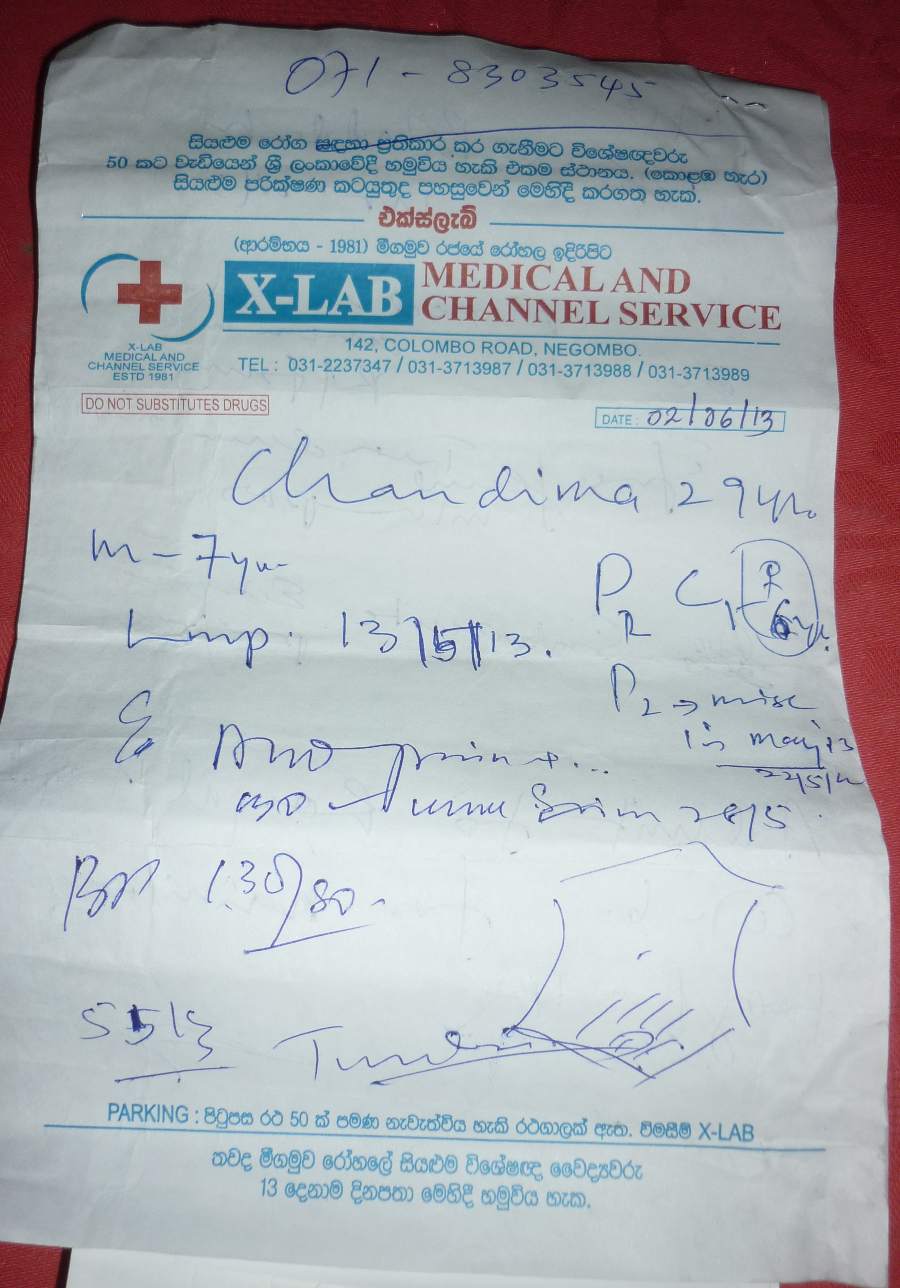 071 - 8303545
සියළුම රෝග සඳහා ප්‍රතිකාර කර ගැනීමට විශේෂඥවරු
50 කට වැඩියෙන් ශ්‍රී ලංකාවේදී හමුවිය හැකි එකම ස්ථානය. (කොළඹ හැර)
සියළුම පරික්ෂණ කටයුතුද පහසුවෙන් මෙහිදී කරගත හැක.
එක්ස්ලැබ්
(ආරම්භය - 1981) මීගමුව රජයේ රෝහල ඉදිරිපිට
X-LAB MEDICAL AND
CHANNEL SERVICE
142, COLOMBO ROAD, NEGOMBO.
TEL : 031-2237347 / 031-3713987 / 031-3713988 / 031-3713989
X-LAB
MEDICAL AND
CHANNEL SERVICE
ESTD 1981
DO NOT SUBSTITUTES DRUGS
DATE : 02/06/13
Chandima 29yr
m - 7yr
P2 C1
6yr.
Lmp. 13/5/13.
P2 → misc
in may 13
22/5/
28/5
130/80.
PARKING : පිටුපස රථ 50 ක් පමණ නැවැත්විය හැකි රථගාලක් ඇත. විමසීම් X-LAB
තවද මීගමුව රෝහලේ සියළුම විශේෂඥ වෛද්‍යවරු
13 දෙනාම දිනපතා මෙහිදී හමුවිය හැක.